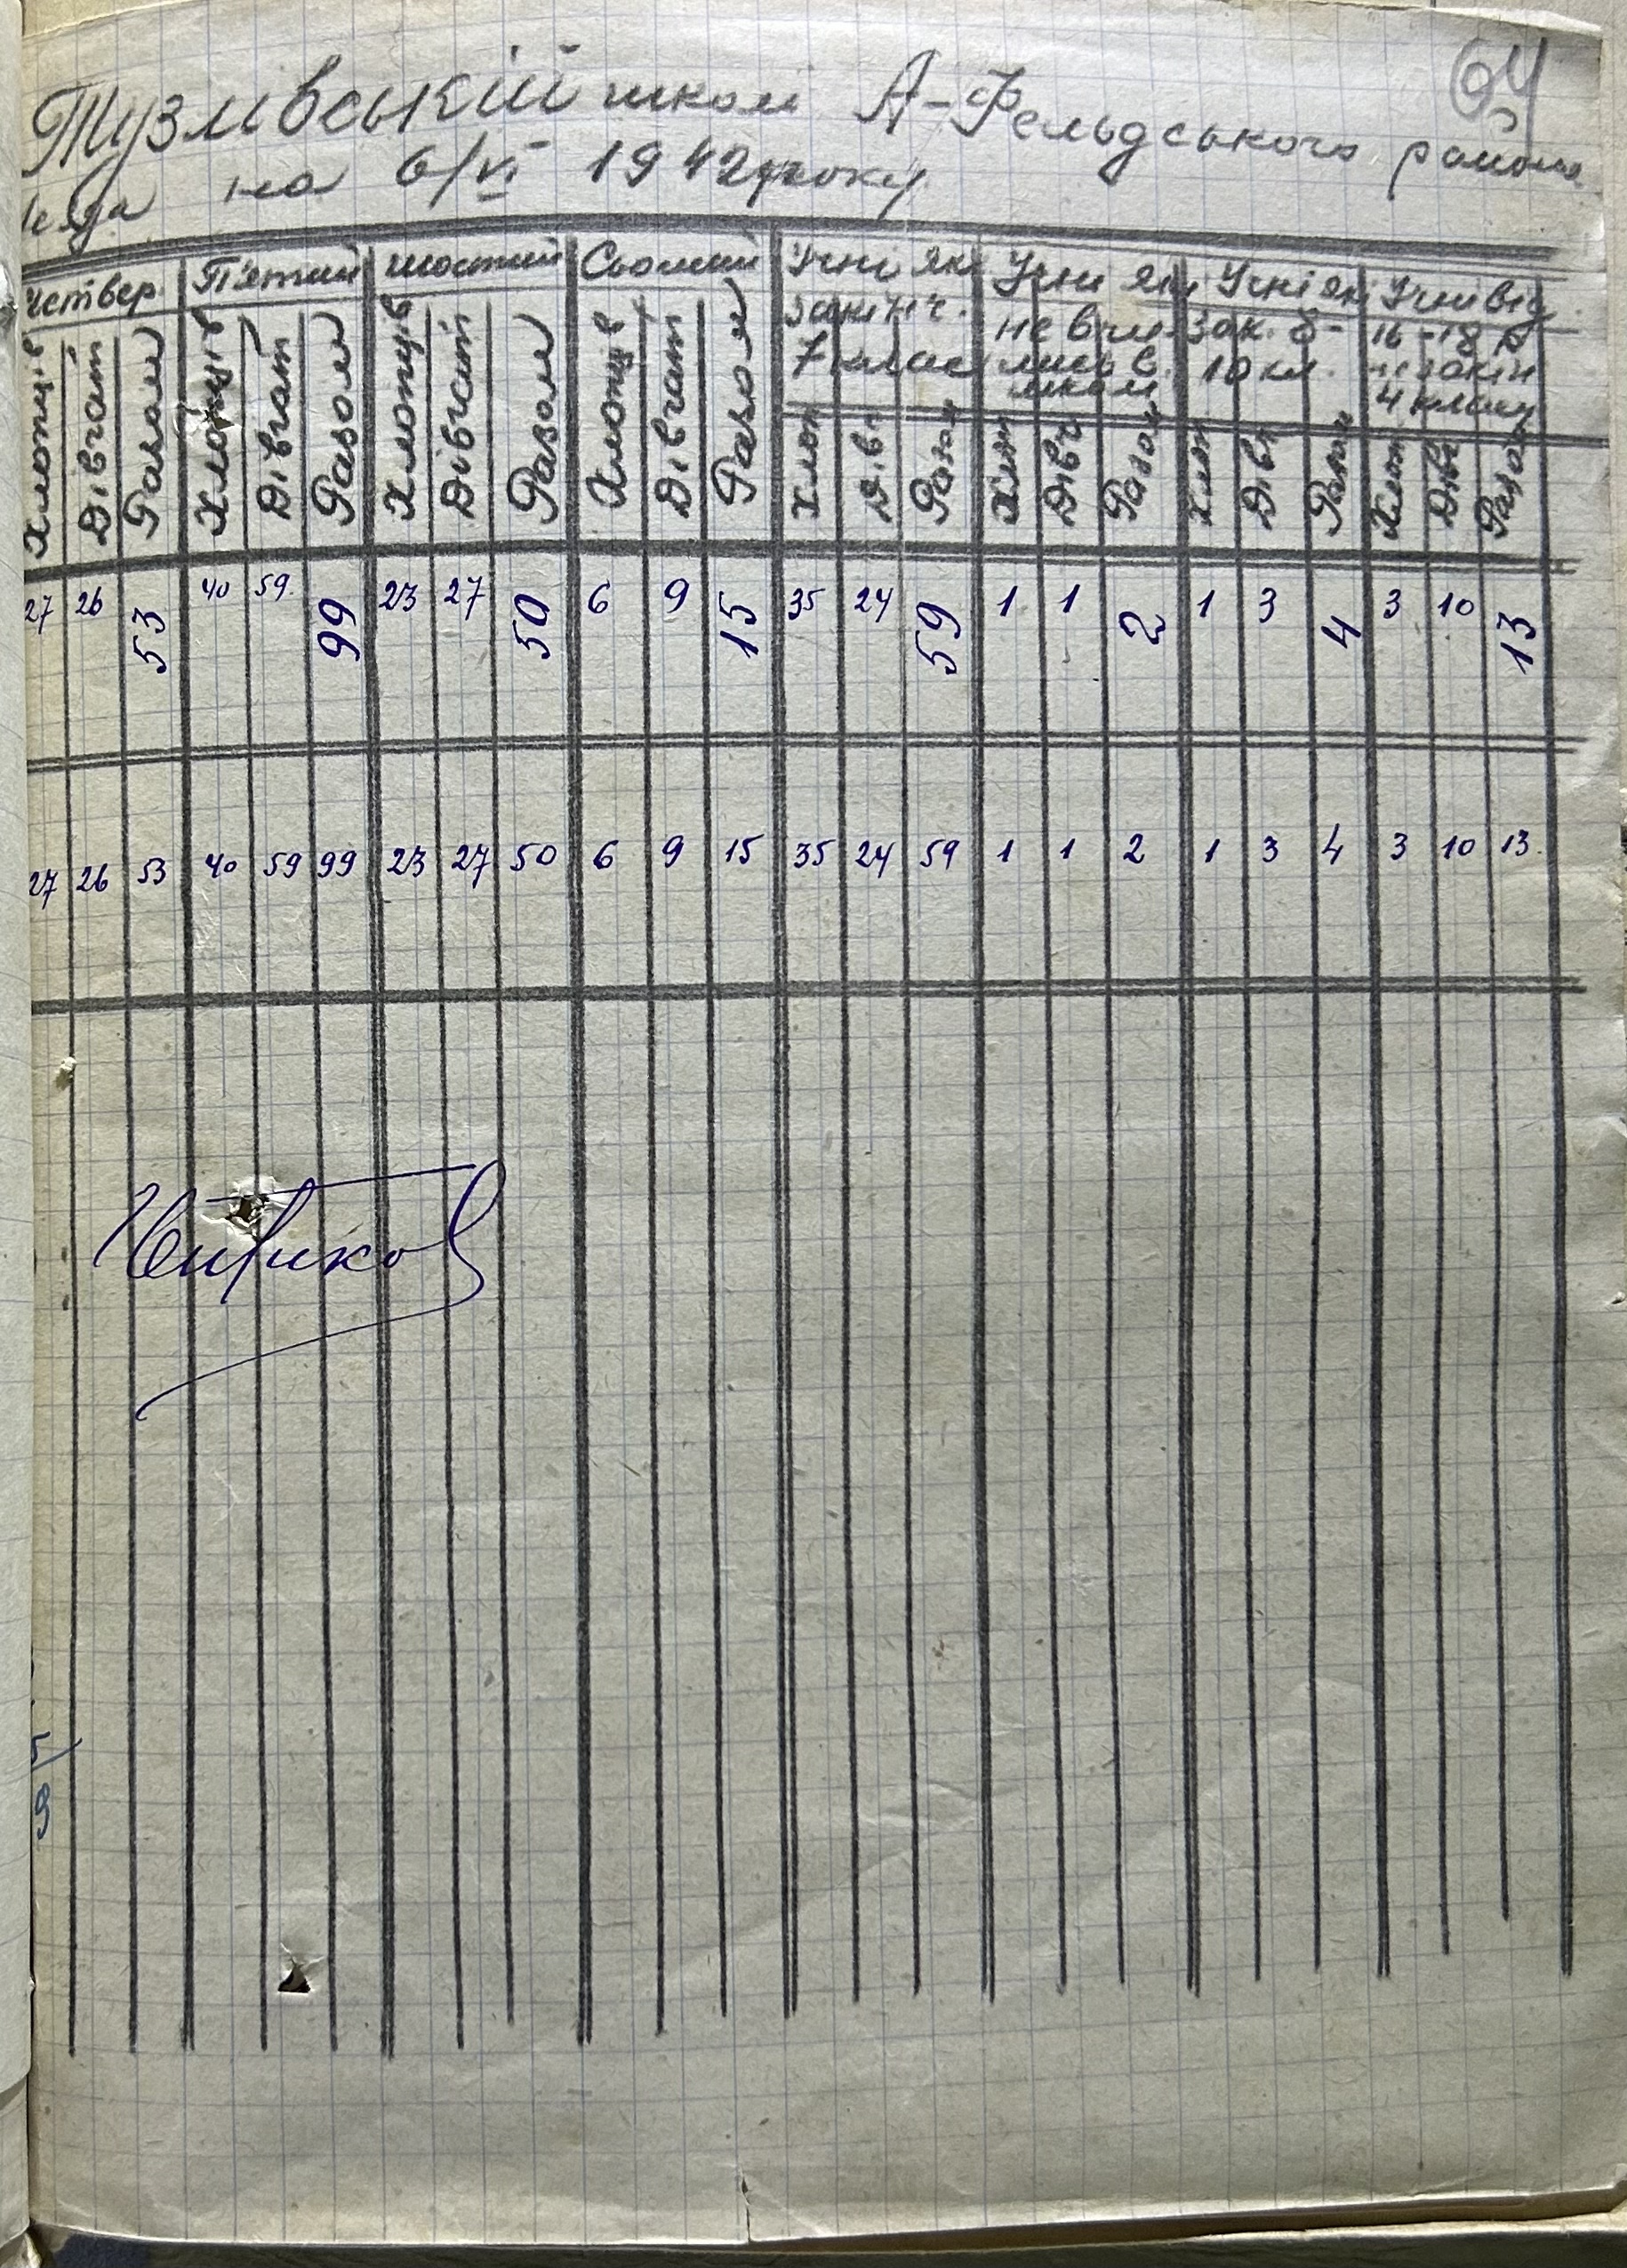 64
Тузлівській школі А-Фельдського району
на 6/VI 1942 року
четвер. П'ятий шостий Сьомий Учні які Учні які Учні які Учні від
закінч. не вчи- зак. 8- 16-18 р
7 клас лись в 10 кл. не закін
школі 4 класи
Хлопців Дівчат Разом Хлопців Дівчат Разом Хлопців Дівчат Разом Хлопців Дівчат Разом Хлоп Дівч Разом Хлоп Дівч Разом Хлоп Дівч Разом Хлоп Дівч Разом
27 26 53 40 59. 99 23 27 50 6 9 15 35 24 59 1 1 2 1 3 4 3 10 13
27 26 53 40 59 99 23 27 50 6 9 15 35 24 59 1 1 2 1 3 4 3 10 13.